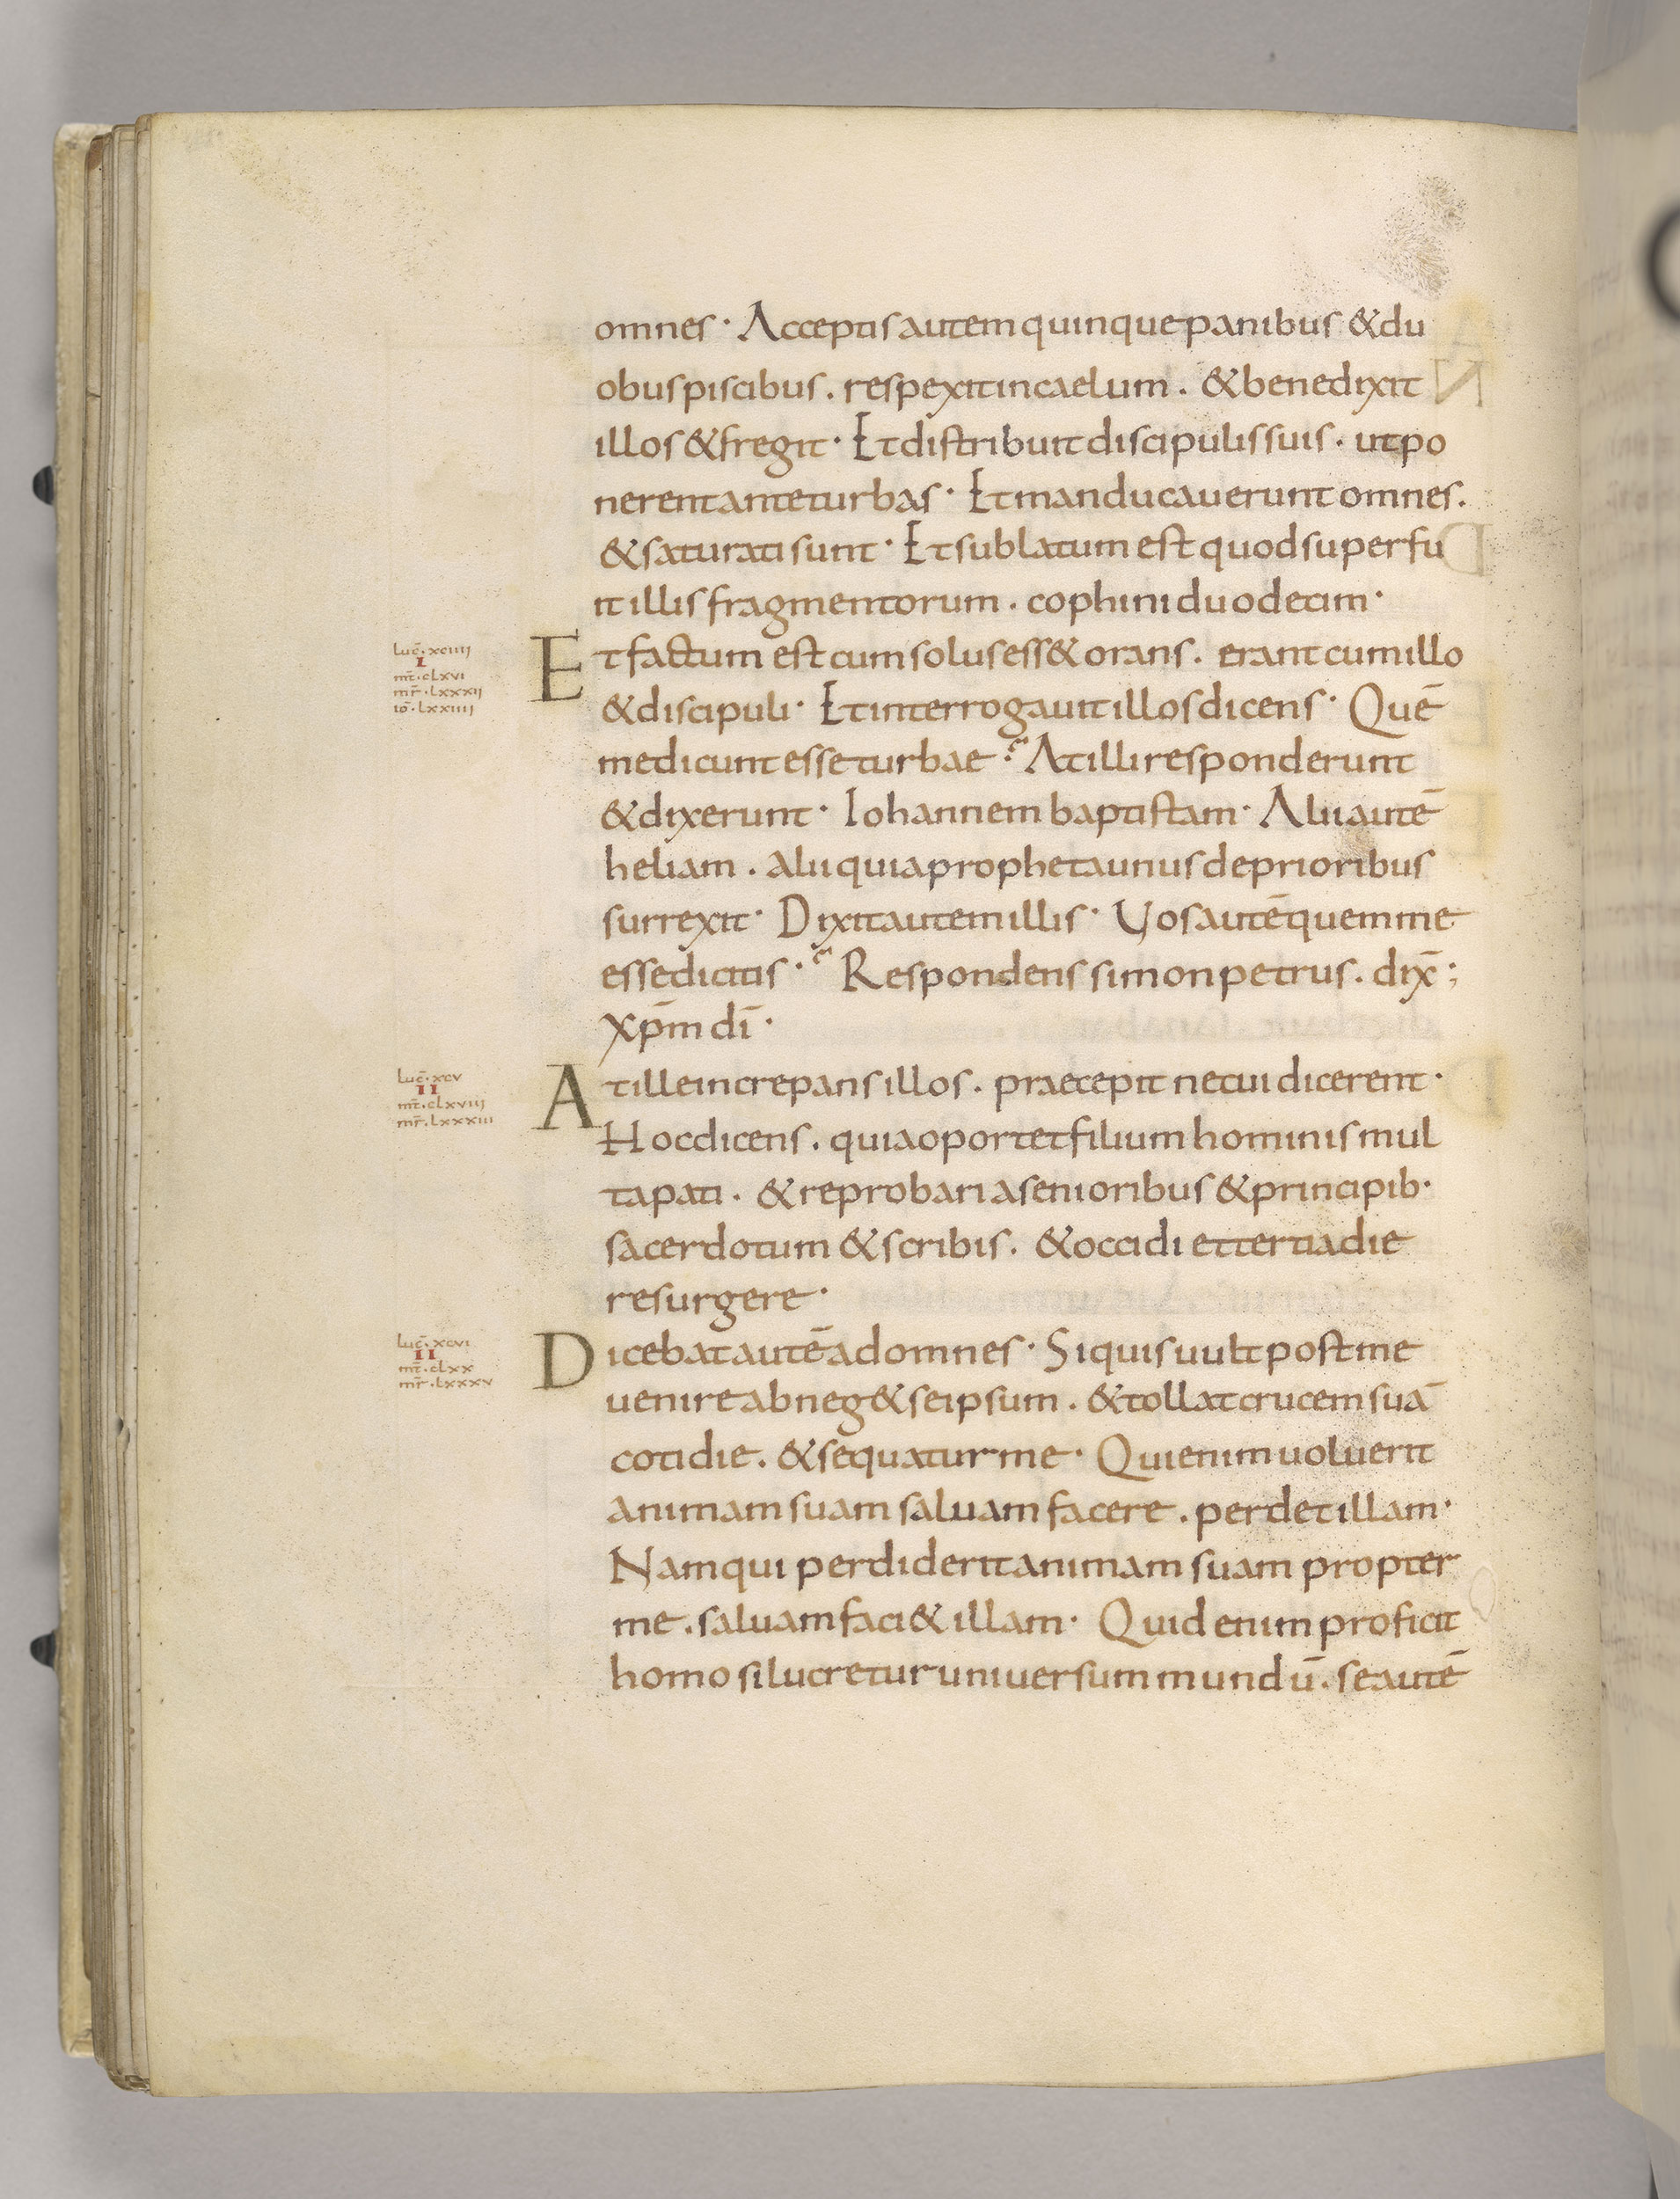 omnes· Acceptis autem quinque panibus & du
obus piscibus. respexit in caelum. & benedixit
illos & fregit· Et distribuit discipulis suis. ut po
nerent ante turbas· Et manducauerunt omnes.
& saturati sunt· Et sublatum est quod superfu
it illis fragmentorum. cophini duodecim·
luc̄. xciiii
I
mt̄. clxvi
mr̄. lxxxii
iō. lxxiiii
Et factum est cum solus ess& orans. erant cum illo
& discipuli· Et interrogauit illos dicens· Quē
me dicunt esse turbae·? At illi responderunt
& dixerunt· Iohannem baptistam· Alii autē
heliam. alii quia propheta unus de prioribus
surrexit· Dixit autem illis· Uos autē quem me
esse dicitis·? Respondens simon petrus. dix̄;
xp̄m dī·
luc̄. xcv
II
mt̄. clxviii
mr̄. lxxxiii
At ille increpans illos. praecepit ne cui dicerent·
Hoc dicens. quia oportet filium hominis mul
ta pati. & reprobari a senioribus & principib·
sacerdotum & scribis. & occidi et tertia die
resurgere·
luc̄. xcvi
II
mt̄. clxx
mr̄. lxxxv
Dicebat autē ad omnes· Si quis uult post me
uenire abneg& se ipsum. & tollat crucem suā
cotidie. & sequatur me· Qui enim uoluerit
animam suam saluam facere. perdet illam·
Nam qui perdiderit animam suam propter
me. saluam faci& illam· Quid enim proficit
homo si lucretur uniuersum mundū. se autē